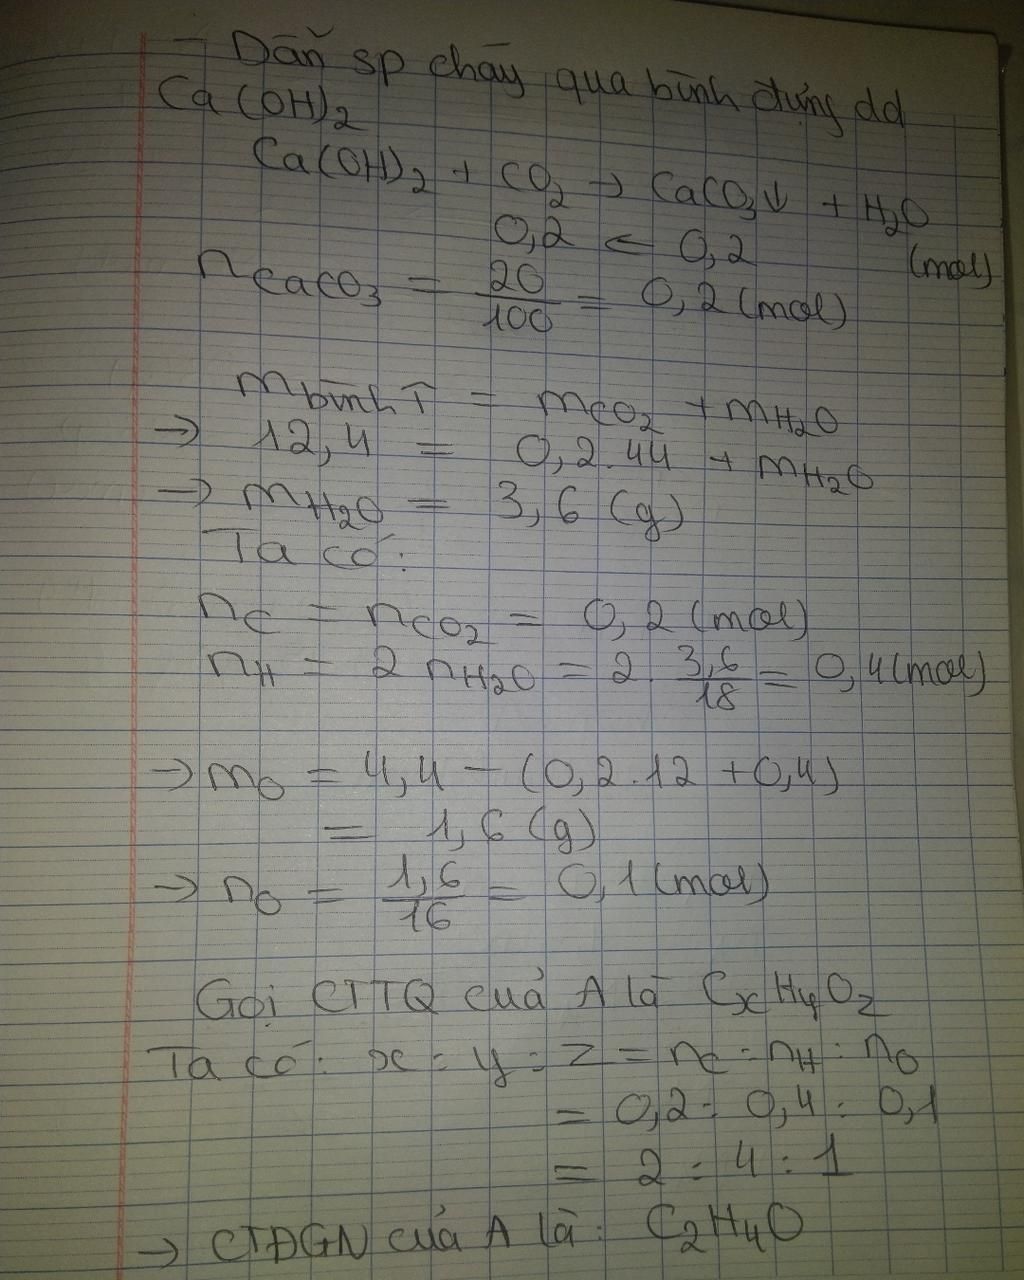 - Dẫn sp cháy qua bình đựng dd
Ca(OH)₂
Ca(OH)₂ + CO₂ → CaCO₃↓ + H₂O
0,2 ← 0,2 (mol)
nCaCO₃ = 20/100 = 0,2 (mol)
m bình ↑ = mCO₂ + mH₂O
→ 12,4 = 0,2.44 + mH₂O
→ mH₂O = 3,6 (g)
Ta có:
nC = nCO₂ = 0,2 (mol)
nH = 2 nH₂O = 2. 3,6/18 = 0,4 (mol)
→ mO = 4,4 - (0,2.12 + 0,4)
= 1,6 (g)
→ nO = 1,6/16 = 0,1 (mol)
Gọi CTTQ của A là CxHyOz
Ta có: x : y : z = nC : nH : nO
= 0,2 : 0,4 : 0,1
= 2 : 4 : 1
→ CTĐGN của A là: C₂H₄O